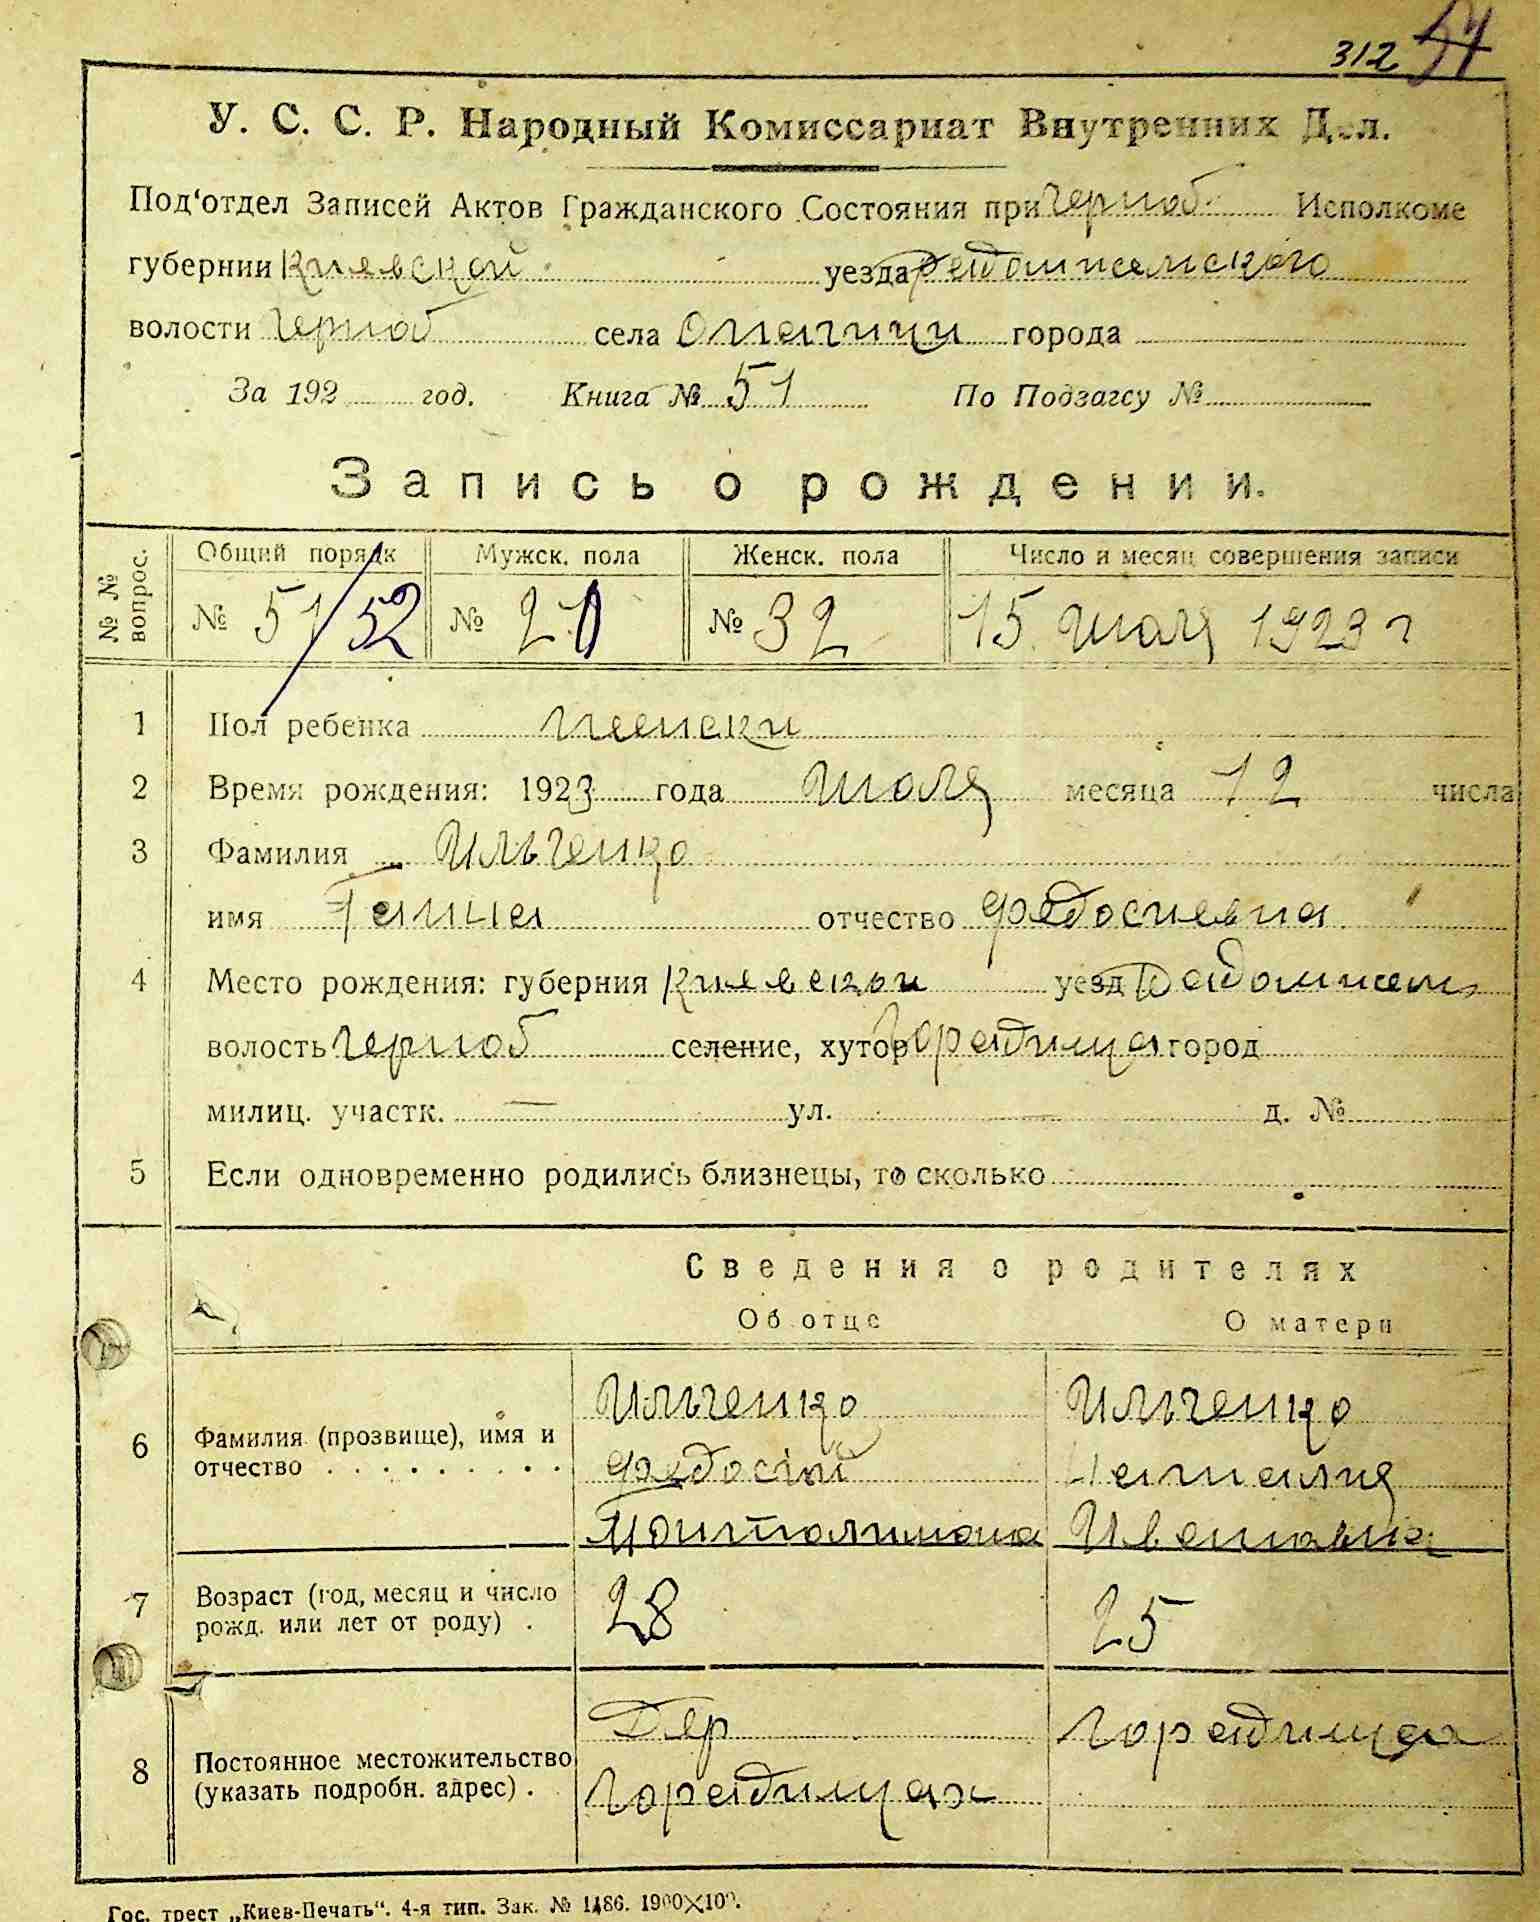 312 54
У. С. С. Р. Народный Комиссариат Внутренних Дел.
Под'отдел Записей Актов Гражданского Состояния при Черноб Исполкоме
губернии Киевской уезда Радомисльского
волости Черноб села Опачичи города
За 192 год. Книга № 51 По Подзагсу №
Запись о рождении.
№ № вопрос. Общий порядк Мужск. пола Женск. пола Число и месяц совершения записи
№ 51/52 № 20 № 32 15 июля 1923 г
1 Пол ребенка женски
2 Время рождения: 1923 года июля месяца 12 числа
3 Фамилия Ильченко
имя Ганна отчество Федосиевна
4 Место рождения: губерния Киевской уезд
волость Черноб селение, хутор Горадища город
милиц. участк. — ул. — д. №
5 Если одновременно родились близнецы, то сколько
Сведения о родителях
Об отце О матери
Ильченко Ильченко
6 Фамилия (прозвище), имя и Федосій Наталия
отчество . . . . . . . . . Ивановна
7 Возраст (год, месяц и число
рожд. или лет от роду) . 28 25
Дер Горадища
8 Постоянное местожительство
(указать подробн. адрес) . Горадищах
Гос. трест „Киев-Печать“. 4-я тип. Зак. № 1486. 1900×100.